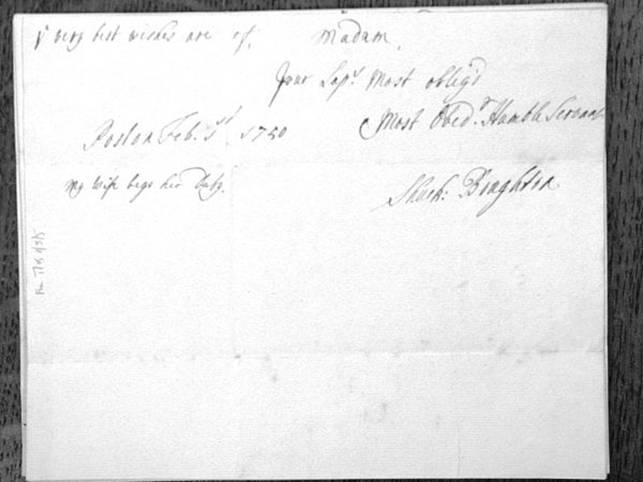 y very best wishes are of, Madam,
Your Lap:s Most oblig'd
Most Obed:t Humble Servant
Poston Feb: 1st 1750
My Wife begs her Duty.
Shuck: Boughton